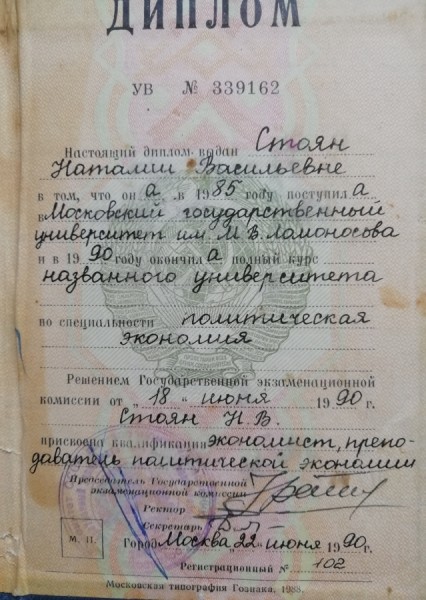 ДИПЛОМ
УВ № 339162
Настоящий диплом выдан Стоян
Наталии Васильевне
в том, что он а в 1985 году поступил а
в Московский государственный
университет им. М.В. Ломоносова
и в 1990 году окончил а полный курс
названного университета
по специальности политическая
экономия
Решением Государственной экзаменационной
комиссии от „18“ июня 1990 г.
Стоян Н.В.
присвоена квалификация экономист, препо-
даватель политической экономии
Председатель Государственной
экзаменационной комиссии
Ректор
Секретарь
М. П.
Город Москва „22“ июня 1990 г.
Регистрационный № 102
Московская типография Гознака. 1988.